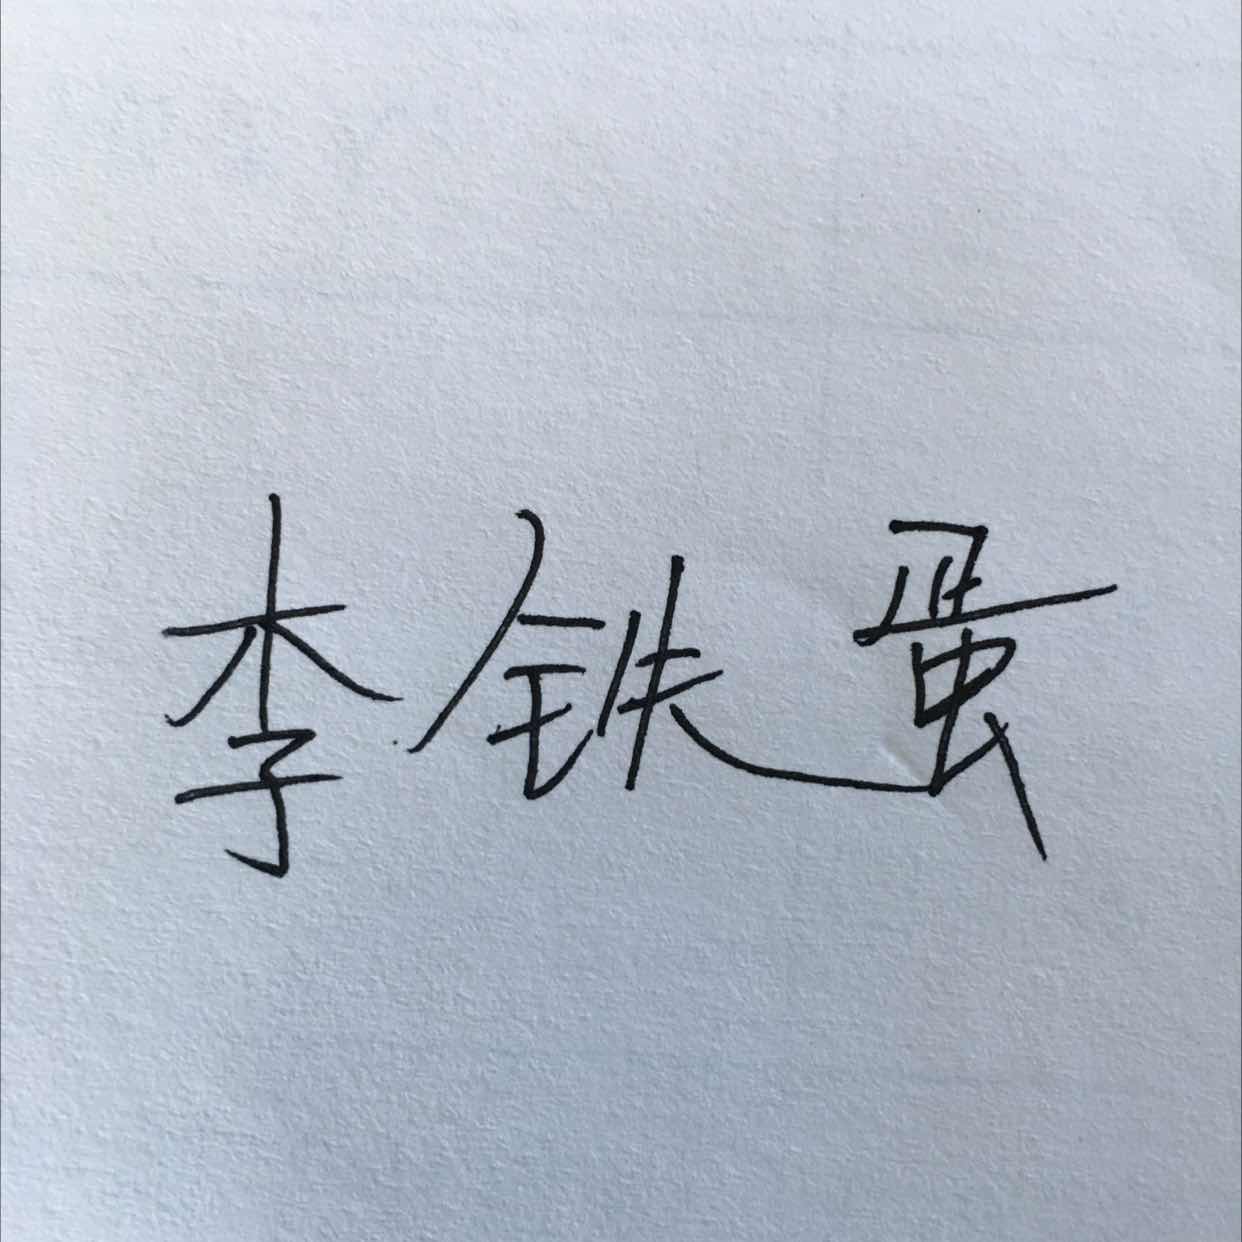 李铁蛋